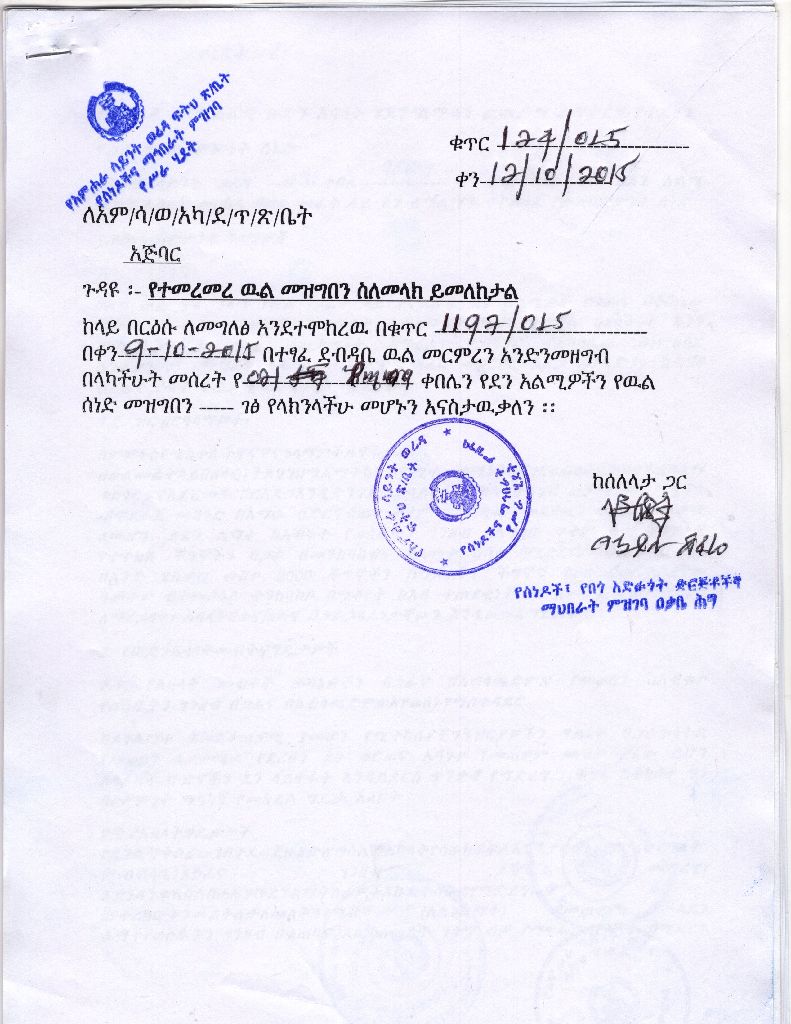 የአምሐራ ሳይንት ወረዳ ፍትህ ጽ/ቤት
የሰነዶችና ማኅበራት ምዝገባ
የሥራ ሂደት
ቁጥር 127/015
ቀን 12/10/2015
ለአም/ሳ/ወ/አካ/ደ/ጥ/ጽ/ቤት
አጅባር
ጉዳዩ ፡- የተመረመረ ዉል መዝግበን ስለመላክ ይመለከታል
ከላይ በርዕሱ ለመግለፅ እንደተሞከረዉ በቁጥር 1197/015
በቀን 9-10-2015 በተፃፈ ደብዳቤ ዉል መርምረን እንድንመዘግብ
በላካችሁት መሰረት የ 02 ቀበሌን የደን አልሚዎችን የዉል
ሰነድ መዝግበን ----- ገፅ የላክንላችሁ መሆኑን እናስታዉቃለን ፡፡
የአምሐራ ሳይንት ወረዳ
ፍትህ ጽ/ቤት
ከሰለላታ ጋር
የሰነዶች፣ የበጎ አድራጎት ድርጅቶችና
ማህበራት ምዝገባ ዐቃቤ ሕግ